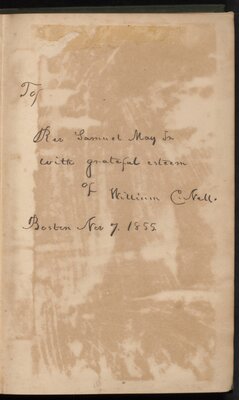 To
Rev Samuel May Jr
with grateful esteem
of William C. Nell.
Boston Nov 7. 1855